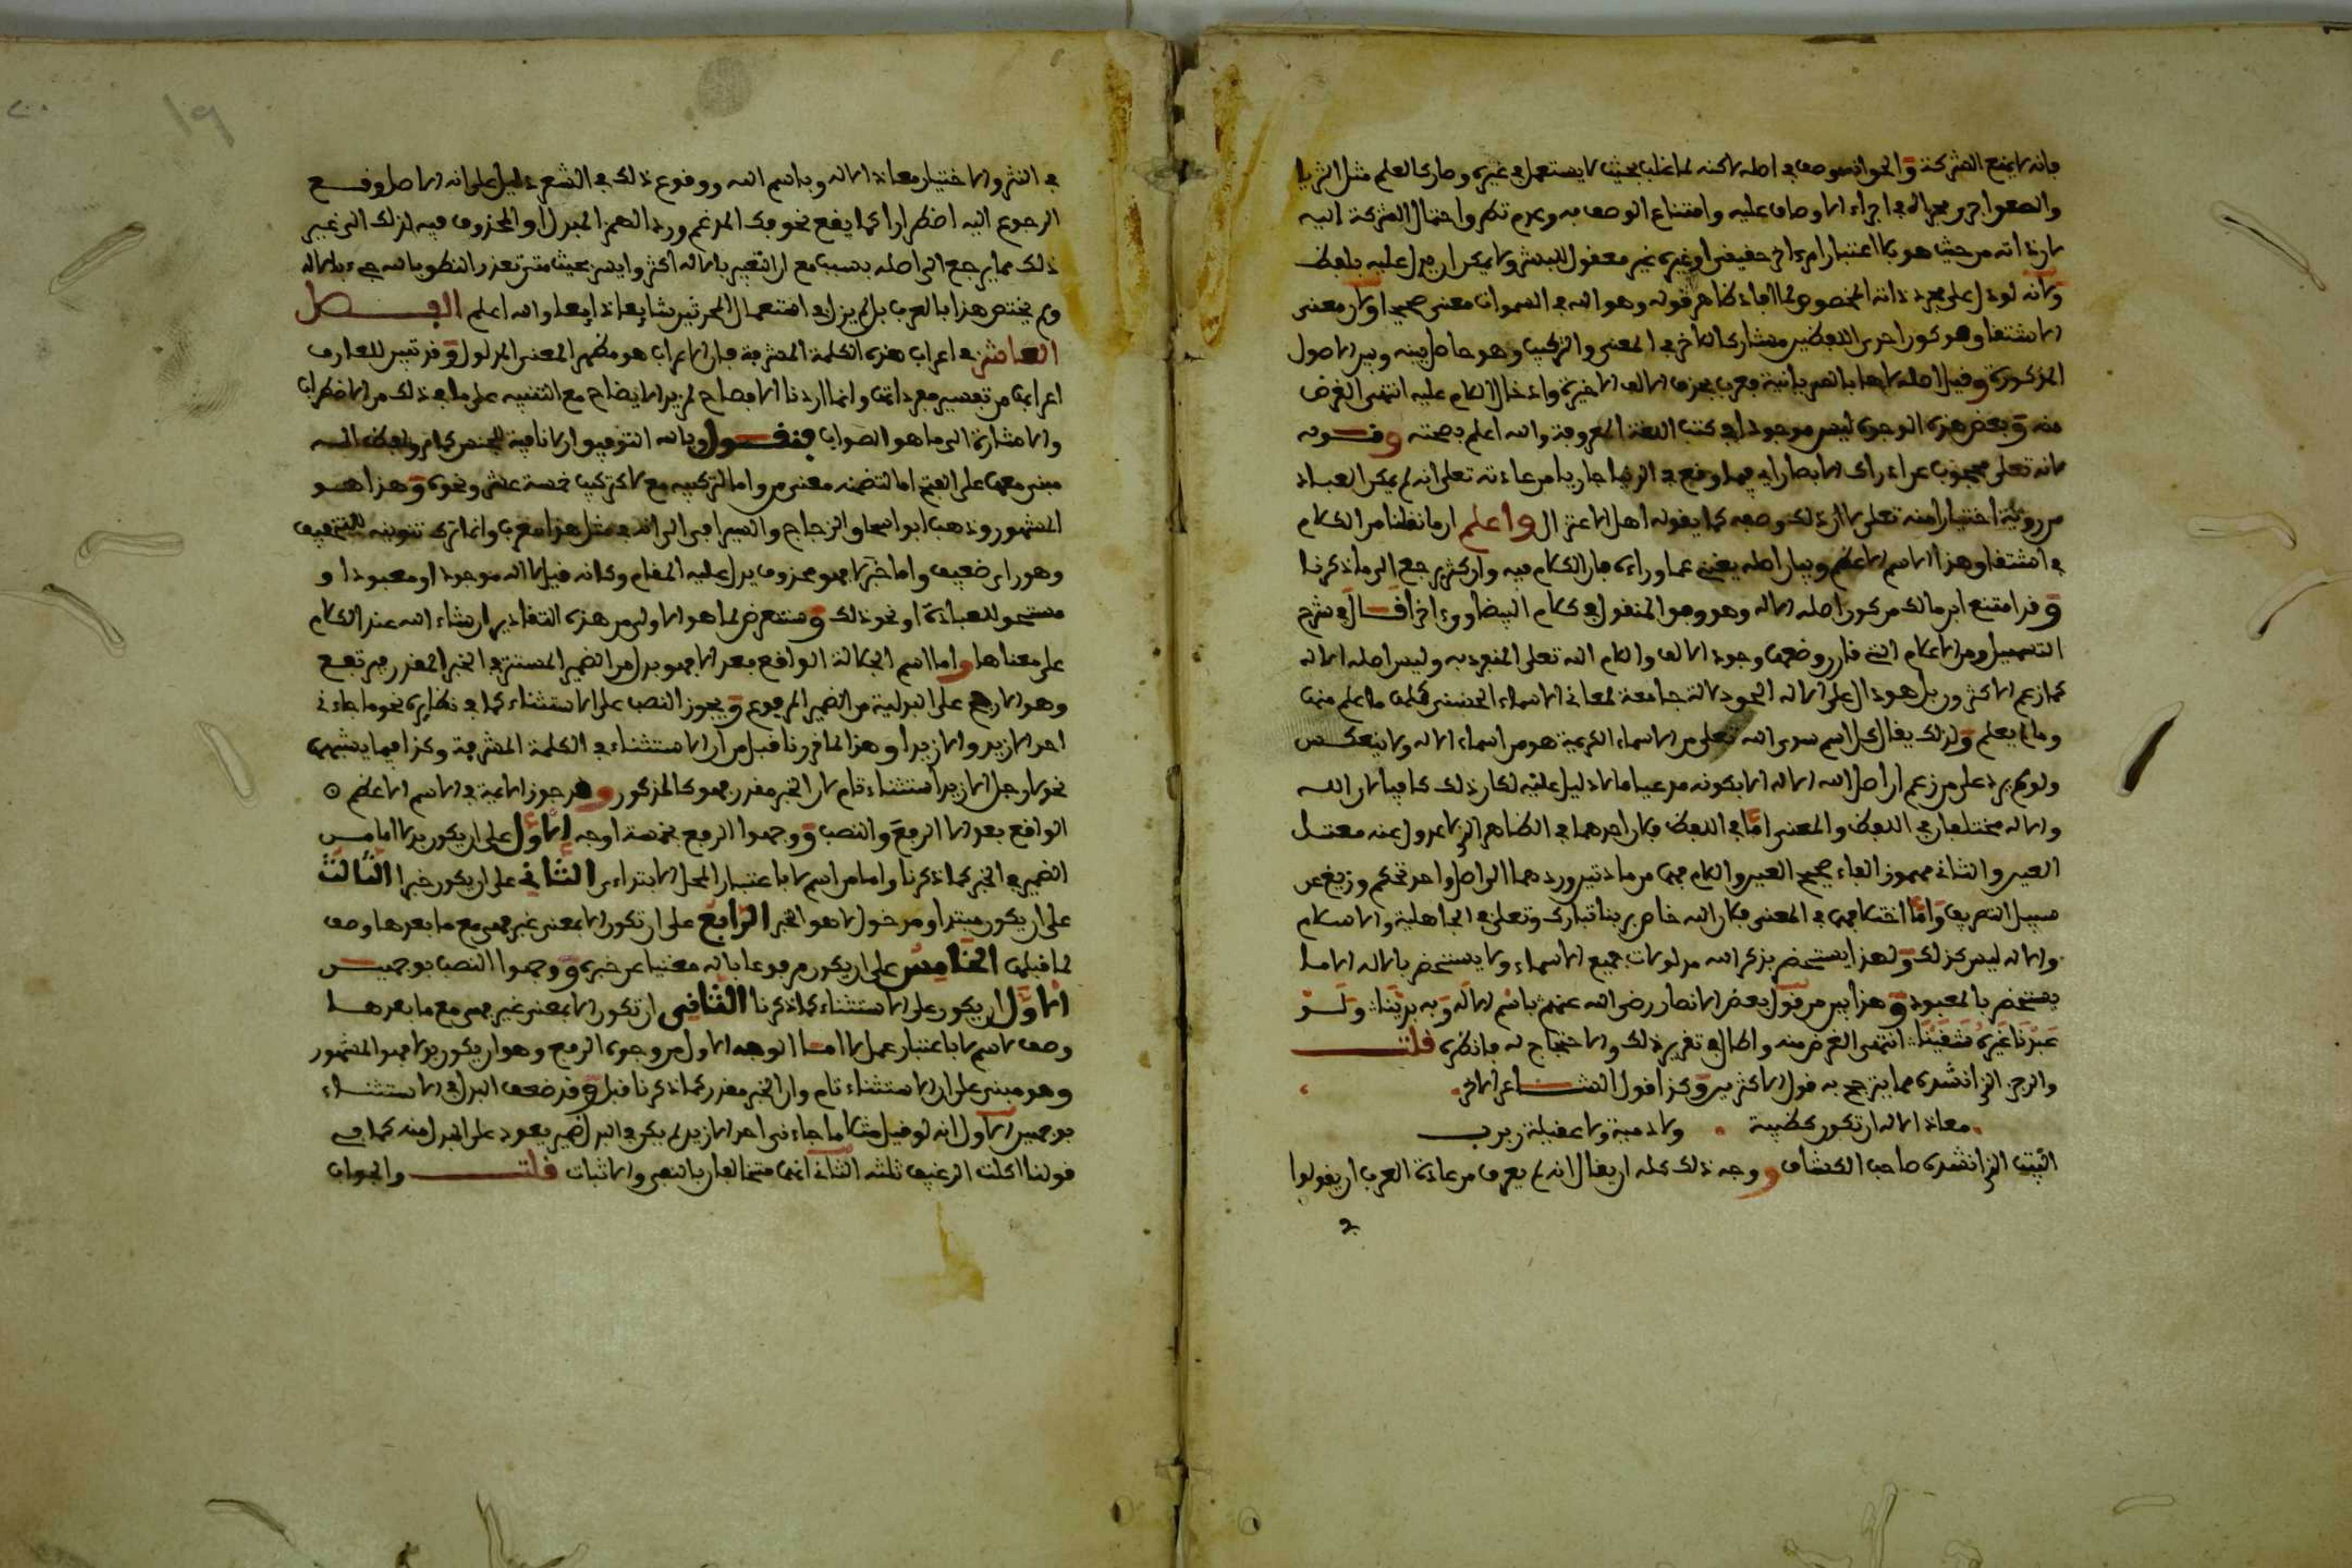 فإنه لا يمنع الشركة والجواب أنه وصف في أصله لاكنه لما غلب بحيث لا يستعمل في غيره وصار كالعلم مثل الثريا
والصعق أجري مجراه في إجراء الأوصاف عليه وامتناع الوصف به وعدم تطرق احتمال الشركة إليه
لأن ذاته من حيث هو بلا اعتبار أمر آخر حقيقي أو غيره غير معقول للبشر ولا يمكن أن يدل عليه بلفظ
ولأنه لو دل على مجرد ذاته المخصوص لما أفاد ظاهر قوله وهو الله في السموات معنى صحيحا ولأن معنى
الاشتقاق وهو كون أحد اللفظين مشاركا للآخر في المعنى والتركيب وهو حاصل بينه وبين الأصول
المذكورة وقيل أصله لاها بالسريانية فعرب بحذف الألف الأخيرة وإدخال اللام عليه انتهى الغرض
منه وبعض هذه الوجوه ليس موجودا في كتب اللغة المعروفة والله أعلم بصحته وقوله
لأنه تعلى محجوب عن إدراك الأبصار إياه فيما وقع في الدنيا جاريا من عادته تعلى أنه لم يمكن العباد
من رؤيته اختيارا منه تعلى لا أن ذلك وصفه كما يقوله أهل الاعتزال واعلم أن ما نقلنا من الكلام
في اشتقاق هذا الاسم الأعظم وبيان أصله يغني عما وراءه فإن الكلام فيه وإن كثر يرجع إلى ما ذكرنا
وقد امتنع ابن مالك من كون أصله الاله وهو وهو المنقول في كلام البيضاوي آخرا قال في شرح
التسهيل ومن الأعلام التي قارن وضعها وجود الألف واللام الله تعلى المنفرد به وليس أصله الاله
كما زعم الأكثرون بل هو دال على الاله الحق دلالة جامعة لمعاني الأسماء الحسنى كلها ما علم منها
وما لم يعلم ولذلك يقال كل اسم سوى الله تعلى من الأسماء الكريمة هو من أسماء الاله ولا ينعكس
ولو لم يرد على من زعم أن أصل الله الاله إلا بكونه مدعيا ما لا دليل عليه لكان ذلك كافيا لأن الله
والاله مختلفان في اللفظ والمعنى أما في اللفظ فلأن أحدهما في الظاهر الذي لا عدول عنه معتل
العين والثاني مهموز الفاء صحيح العين واللام فهما من مادتين وردهما إلى أصل واحد تحكم وزيغ عن
سبيل التصريف وأما اختلافهما في المعنى فلأن الله خاص بربنا تبارك وتعلى في الجاهلية والإسلام
والاله ليس كذلك ولهذا يستحضر بذكر الله مدلولات جميع الأسماء ولا يستحضر بالاله إلا ما
يستحضر بالمعبود وهذا بين من قول بعض الأنصار رضي الله عنهم باسم الاله وبه بدينا ولو
عبدنا غيره شقينا انتهى الغرض منه وأطال في تقرير ذلك والاحتجاج له فانظره قلت
والرجز الذي أنشده مما يترجح به قول الأكثرين وكذا قول الشاعر الآخر
معاذ الاله أن تكون كظبية ولا دمية ولا عقيلة ربرب
البيت الذي أنشده صاحب الكشاف ووجه ذلك كله أن يقال إنه لم يعرف من عادة العرب أن يقولوا
في
في النثر والاختيار معاذ الاله وباسم الله ووقوع ذلك في الشعر دليل على أنه الأصل وقع
الرجوع إليه اضطرارا كما يقع نحو فك المدغم ورد الهمز المبدل أو المحذوف فيه لذلك إلى غير
ذلك مما يرجع إلى أصله بسبب مع أن التعبير بالاله أكثر وأيسر بحيث متى تعذر النطق بالله جيء بالاله
ولم يختص هذا بالعرب بل لم يزل في استعمال المحدثين شايعا ذايعا والله أعلم الفصل
العاشر في إعراب هذه الكلمة المشرفة فإن الإعراب هو مظهر المعنى المدلول وقد تبين للعارف
إعرابها من تفسير مفرداتها وإنما أردنا الإفصاح لمزيد الإيضاح مع التنبيه على ما في ذلك من الاضطراب
والإشارة إلى ما هو الصواب فنقول وبالله التوفيق إن لا نافية للجنس كما مر ولفظ اله
مبني معها على الفتح إما لتضمنه معنى من وإما لتركيبه مع لا كتركيب خمسة عشر ونحوه وهذا هو
المشهور وذهب أبو إسحاق الزجاج والسيرافي إلى أن اله في مثل هذا معرب وإنما ترك تنوينه للتخفيف
وهو رأي ضعيف وأما خبر لا فهو محذوف يدل عليه المقام وكأنه قيل لا اله موجود أو معبود أو
مستحق للعبادة أو نحو ذلك وسنتعرض لما هو الأولى من هذه التقادير إن شاء الله عند الكلام
على معناها وأما اسم الجلالة الواقع بعد إلا فهو بدل من الضمير المستتر في الخبر المقدر فيرتفع
وهو الأرجح على البدلية من الضمير المرفوع ويجوز النصب على الاستثناء كما في نظايره نحو ما جاءني
أحد إلا زيد وإلا زيدا وهذا لما قررنا قبل من أن الاستثناء في الكلمة المشرفة وكذا فيما يشبهها
نحو لا رجل إلا زيدا استثناء تام لأن الخبر مقدر فهو كالمذكور وقد جوز الأئمة في الاسم الأعظم
الواقع بعد إلا الرفع والنصب ووجهوا الرفع بخمسة أوجه الأول على أن يكون بدلا إما من
الضمير في الخبر كما ذكرنا وإما من اسم لا باعتبار المحل الابتداءي الثاني على أن يكون خبرا الثالث
على أن يكون مبتدأ ومدخول لا هو الخبر الرابع على أن تكون إلا بمعنى غير فهي مع ما بعدها وصف
لما قبلها الخامس على أن يكون مرفوعا باله مغنيا عن خبره ووجهوا النصب بوجهين
الأول أن يكون على الاستثناء كما ذكرنا الثاني أن تكون إلا بمعنى غير فهي مع ما بعدها
وصف لاسم لا باعتبار عمل لا أما الوجه الأول من وجوه الرفع وهو أن يكون بدلا فهو المشهور
وهو مبني على أن الاستثناء تام وأن الخبر مقدر كما ذكرنا قبل وقد ضعف البدل في الاستثناء
بوجهين الأول أنه لو قيل مثلا ما جاءني أحد إلا زيد لم يكن في البدل ضمير يعود على المبدل منه كما في
قولنا أكلت الرغيف ثلثه الثاني أنهما متخالفان بالنفي والإثبات قلت والجواب